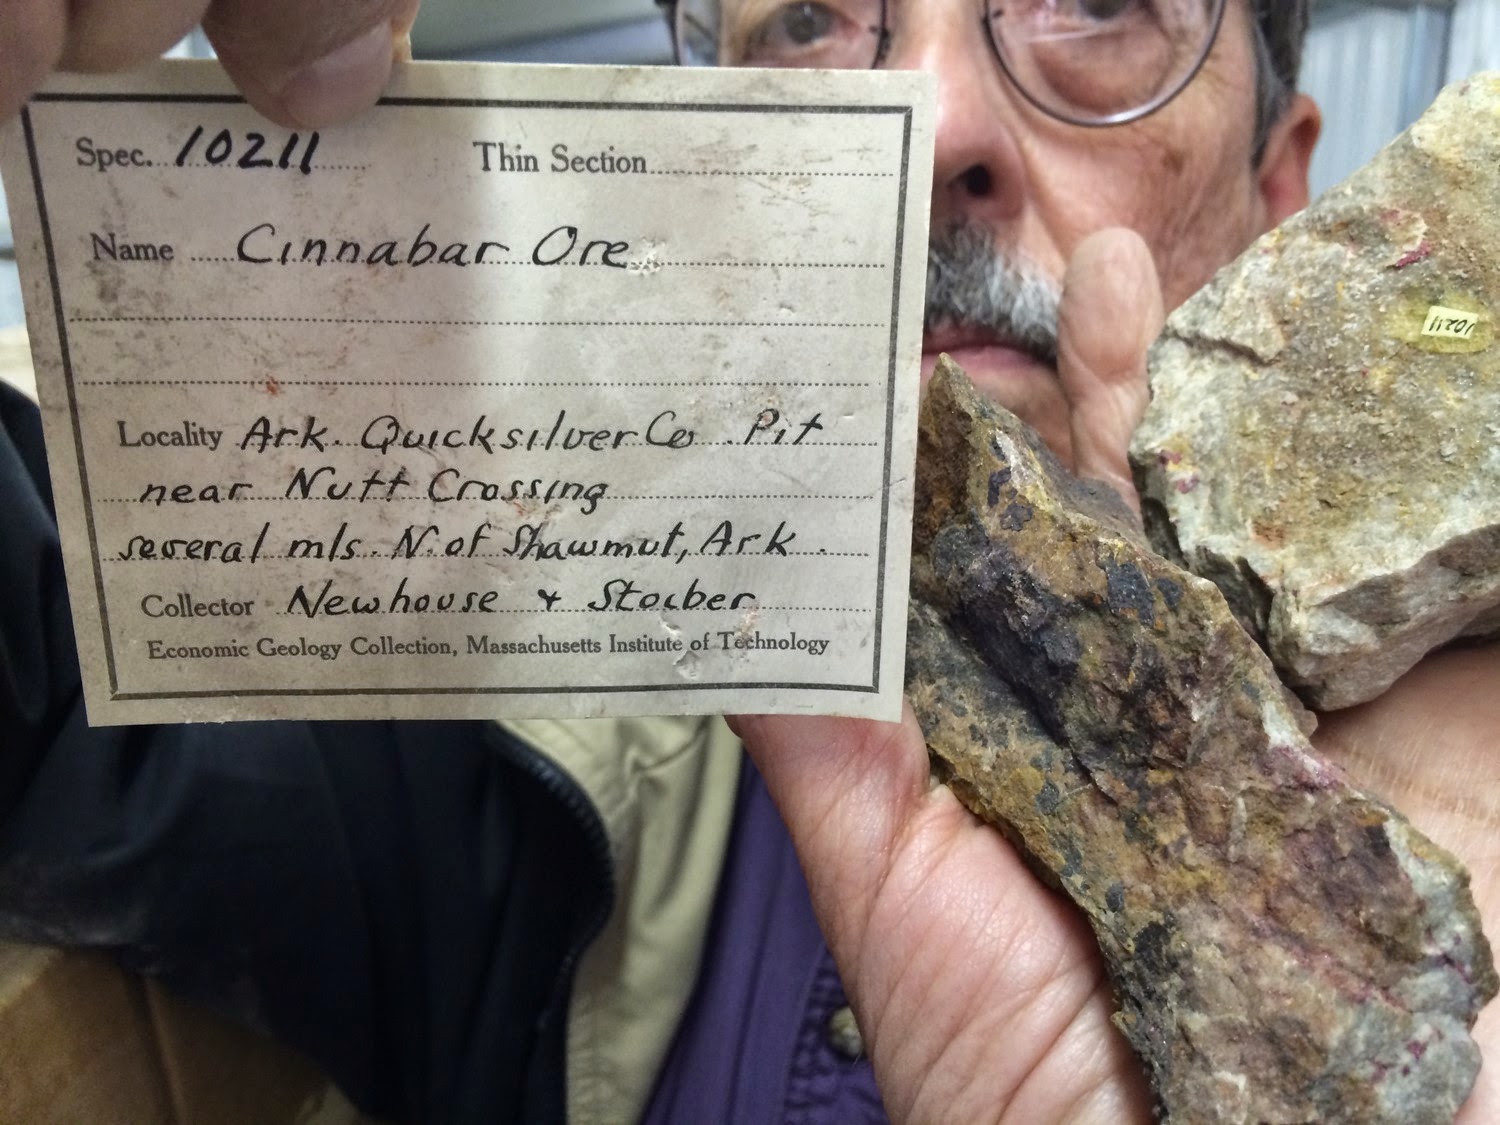 Spec. 10211 Thin Section
Name Cinnabar Ore
Locality Ark. Quicksilver Co. Pit
near Nutt Crossing
several mls. N. of Shawmut, Ark.
Collector Newhouse & Stoiber
Economic Geology Collection, Massachusetts Institute of Technology
10211